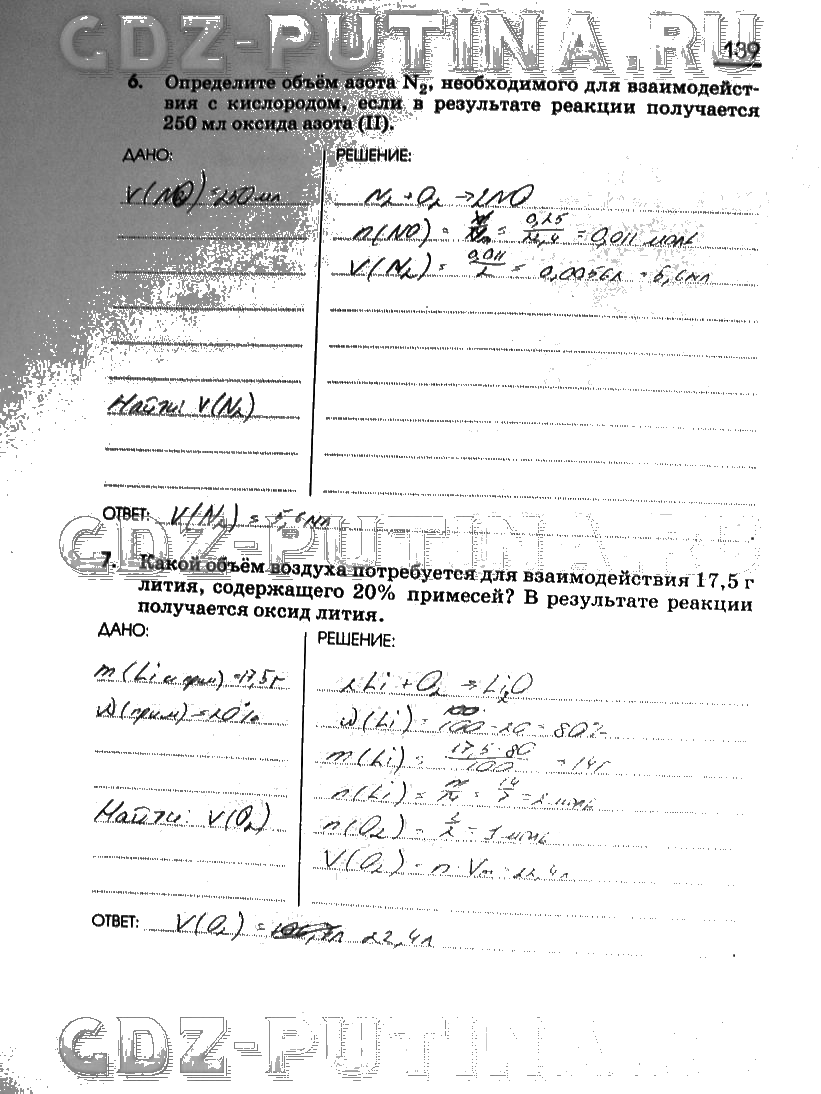 GDZ-PUTINA.RU
139
6. Определите объём азота N₂, необходимого для взаимодейст-
вия с кислородом, если в результате реакции получается
250 мл оксида азота (II).
ДАНО:
РЕШЕНИЕ:
V(NO) = 250 мл
N₂ + O₂ → 2NO
n(NO) = V/Vm = 0,25/22,4 = 0,011 моль
V(N₂) = 0,011/2 = 0,0056л = 5,6мл
Найти: V(N₂)
ОТВЕТ: V(N₂) = 5,6мл
GDZ-PUTINA.RU
7. Какой объём воздуха потребуется для взаимодействия 17,5 г
лития, содержащего 20% примесей? В результате реакции
получается оксид лития.
ДАНО:
РЕШЕНИЕ:
m(Li и прим) = 17,5г
2Li + O₂ → Li₂O
W(прим) = 20%
W(Li) = 100 - 20 = 80%
m(Li) = 17,5·80/100 = 14г
n(Li) = m/M = 14/7 = 2 моль
Найти: V(O₂)
n(O₂) = 2/2 = 1 моль
V(O₂) = n · Vm = 22,4л
ОТВЕТ: V(O₂) = 22,4л
GDZ-PUTINA.RU